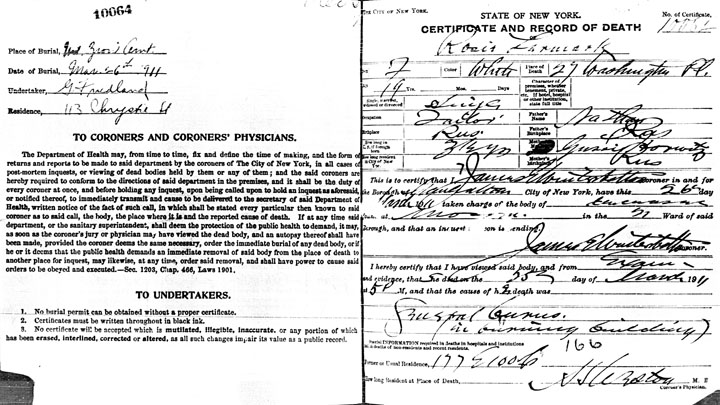 10064
Place of Burial, Mt. Zion Cemt
Date of Burial, Mar. 26th 1911
Undertaker, G. Friedland
Residence, 113 Chrystie St
TO CORONERS AND CORONERS' PHYSICIANS.
The Department of Health may, from time to time, fix and define the time of making, and the form of
returns and reports to be made to said department by the coroners of The City of New York, in all cases of
post-mortem inquests, or viewing of dead bodies held by them or any of them; and the said coroners are
hereby required to conform to the directions of said department in the premises, and it shall be the duty of
every coroner at once, and before holding any inquest, upon being called upon to hold an inquest as aforesaid,
or notified thereof, to immediately transmit and cause to be delivered to the secretary of said Department of
Health, written notice of the fact of such call, in which shall be stated every particular then known to said
coroner as to said call, the body, the place where it is and the reported cause of death. If at any time said
department, or the sanitary superintendent, shall deem the protection of the public health to demand, it may,
as soon as the coroner's jury or physician may have viewed the dead body, and an autopsy thereof shall have
been made, provided the coroner deems the same necessary, order the immediate burial of any dead body, or if
he or it deems that the public health demands an immediate removal of said body from the place of death to
another place for inquest, may likewise, at any time, order said removal, and shall have power to cause said
orders to be obeyed and executed.—Sec. 1203, Chap. 466, Laws 1901.
TO UNDERTAKERS.
1. No burial permit can be obtained without a proper certificate.
2. Certificates must be written throughout in black ink.
3. No certificate will be accepted which is mutilated, illegible, inaccurate, or any portion of which
has been erased, interlined, corrected or altered, as all such changes impair its value as a public record.
THE CITY OF NEW YORK.
STATE OF NEW YORK.
No. of Certificate,
CERTIFICATE AND RECORD OF DEATH
Color White Place of Death 27 Washington Pl.
19 Yrs. Mos. Days
Character of premises, whether tenement, private, etc. If hotel, hospital or other institution, state full title
Single, married, widowed or divorced Single
Occupation Tailor Father's Name Nathan
Birthplace Rus. Father's Birthplace Rus
How long in U.S. if foreign born 3 yrs Gussie Horowitz
Mother's Birthplace Rus
This is to certify that I, James E Winterbottom coroner in and for
the Borough of Manhattan City of New York, have this 26 day
March 1911 taken charge of the body of deceased
found at Morgue in the 21 Ward of said
Borough, and that an inquest is pending
James E Winterbottom Coroner.
I hereby certify that I have viewed said body, and from Exam
and evidence, that she died on the 25 day of March 1911
at 5 P M, and that the cause of her death was
(in burning building)
166
Special INFORMATION required in deaths in hospitals and institutions
and in deaths of non-residents and recent residents.
Former or Usual Residence, 177 E 100 St
How long Resident at Place of Death, M. D.
Coroner's Physician.